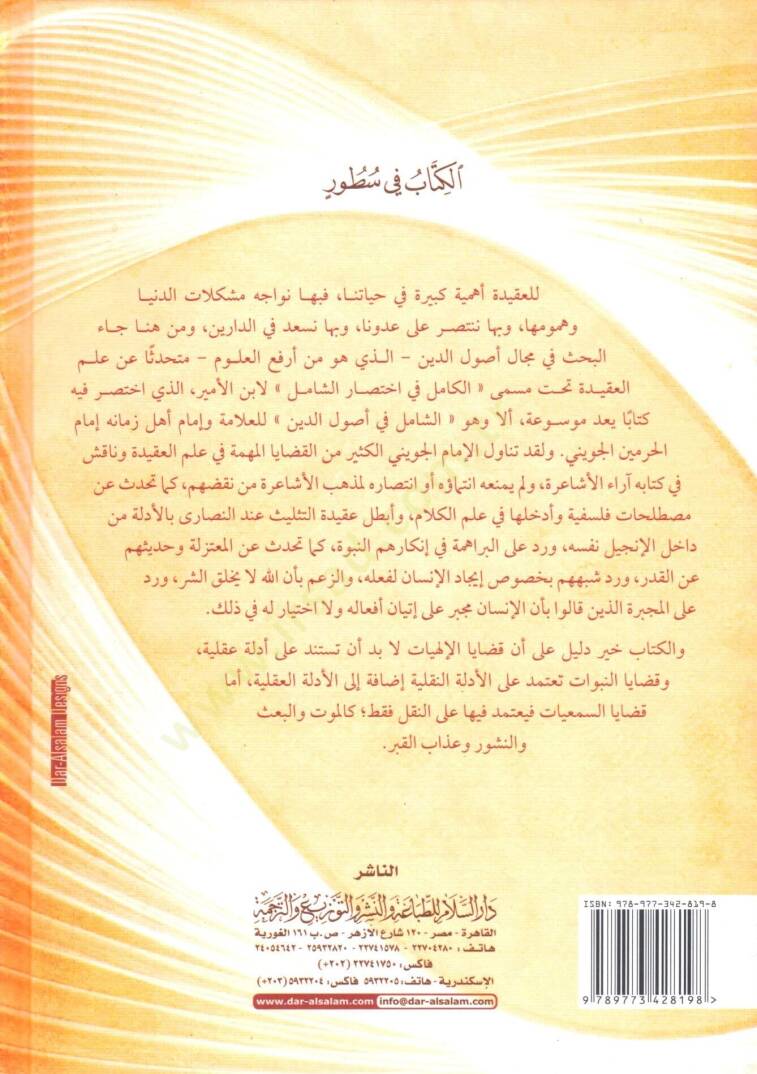 الكِتَابُ فِي سُطُورٍ
للعقيدة أهمية كبيرة في حياتنا، فبها نواجه مشكلات الدنيا
وهمومها، وبها ننتصر على عدونا، وبها نسعد في الدارين، ومن هنا جاء
البحث في مجال أصول الدين – الذي هو من أرفع العلوم – متحدثًا عن علم
العقيدة تحت مسمى « الكامل في اختصار الشامل » لابن الأمير، الذي اختصر فيه
كتابًا يعد موسوعة، ألا وهو « الشامل في أصول الدين » للعلامة وإمام أهل زمانه إمام
الحرمين الجويني. ولقد تناول الإمام الجويني الكثير من القضايا المهمة في علم العقيدة وناقش
في كتابه آراء الأشاعرة، ولم يمنعه انتماؤه أو انتصاره لمذهب الأشاعرة من نقضهم، كما تحدث عن
مصطلحات فلسفية وأدخلها في علم الكلام، وأبطل عقيدة التثليث عند النصارى بالأدلة من
داخل الإنجيل نفسه، ورد على البراهمة في إنكارهم النبوة، كما تحدث عن المعتزلة وحديثهم
عن القدر، ورد شبههم بخصوص إيجاد الإنسان لفعله، والزعم بأن الله لا يخلق الشر، ورد
على المجبرة الذين قالوا بأن الإنسان مجبر على إتيان أفعاله ولا اختيار له في ذلك.
والكتاب خير دليل على أن قضايا الإلهيات لا بد أن تستند على أدلة عقلية،
وقضايا النبوات تعتمد على الأدلة النقلية إضافة إلى الأدلة العقلية، أما
قضايا السمعيات فيعتمد فيها على النقل فقط؛ كالموت والبعث
والنشور وعذاب القبر.
Dar-Alsalam Designs
الناشر
دار السلام للطباعة والنشر والتوزيع والترجمة
القاهرة - مصر - ١٢٠ شارع الأزهر - ص.ب ١٦١ الغورية
هاتف : ٢٢٧٠٤٢٨٠ - ٢٢٧٤١٥٧٨ - ٢٥٩٣٢٨٢٠ - ٢٤٠٥٤٦٤٢
فاكس : ٢٢٧٤١٧٥٠ (٢٠٢+)
الإسكندرية - هاتف : ٥٩٣٢٢٠٥ فاكس : ٥٩٣٢٢٠٤ (٢٠٣+)
www.dar-alsalam.com info@dar-alsalam.com
ISBN: 978-977-342-819-8
9 789773 428198 >